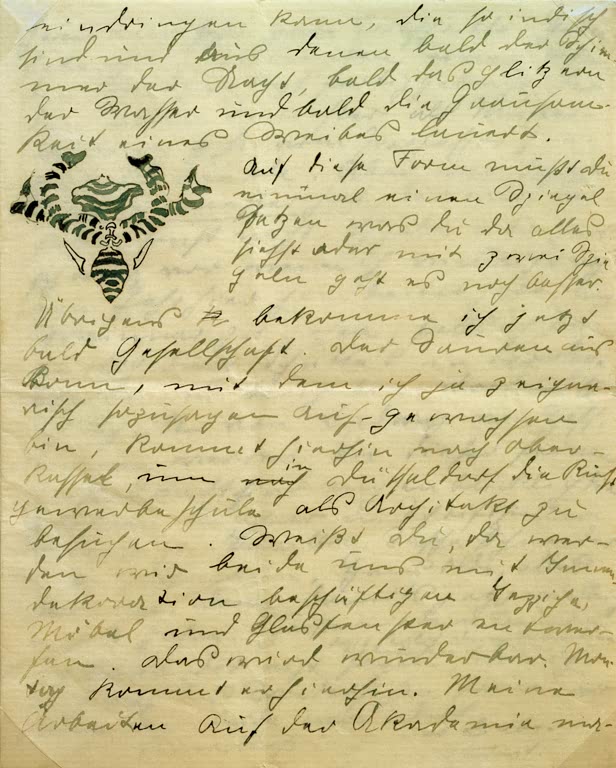 eindringen kann, die so indisch
sind und aus denen bald der Schim
mer der Nacht, bald das glitzern
der Wasser und bald die Grausam
keit eines Weibes lauert.
Auf diese Form mußt du
einmal einen Spiegel
setzen was du da alles
siehst oder mit zwei Spie
geln geht es noch besser.
Übrigens bekomme ich jetzt
bald Gesellschaft. Der aus
Bonn, mit dem ich ja zeichne-
risch sozusagen auf-gewachsen
bin, kommt hierhin nach Ober-
kassel, um nach in Düsseldorf die Kunst
gewerbeschule als Architekt zu
besuchen. Weißt du, da wer-
den wir beide uns mit Innen
dekoration beschäftigen Teppiche,
Möbel und Glasfenster entwer-
fen. Das wird wunderbar. Mon
tag kommt er hierhin. Meine
Arbeiten auf der Akademie ma-